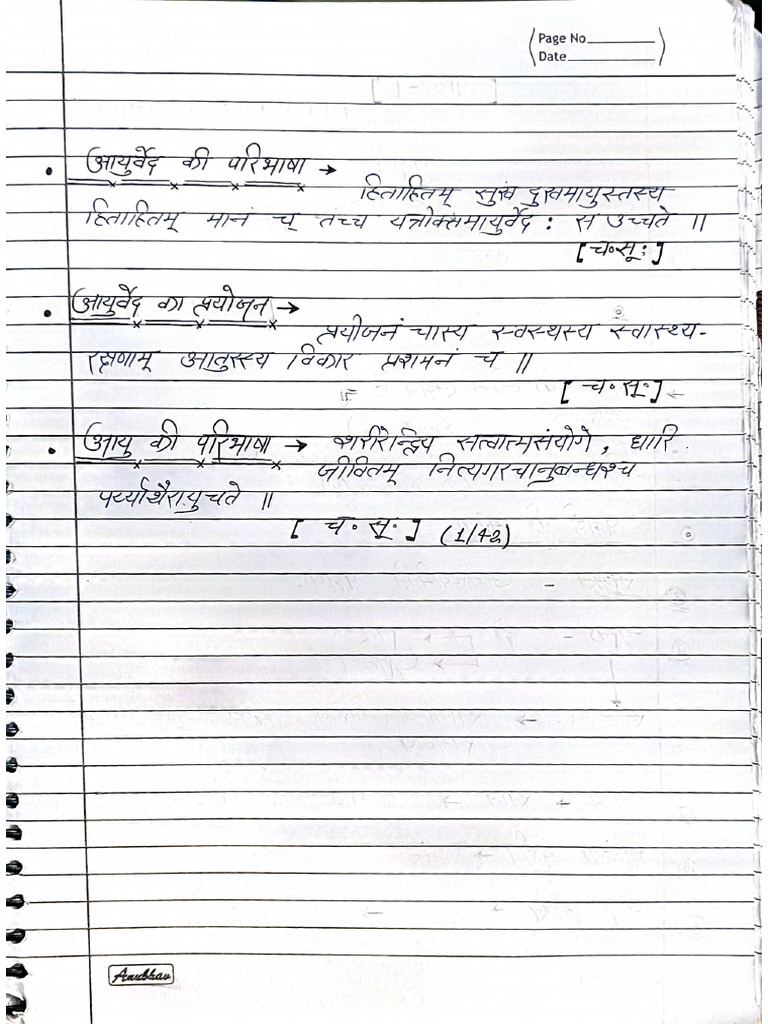 Page No
Date
आयुर्वेद की परिभाषा →
हिताहितम् सुखं दुखमायुस्तस्य
हिताहितम् मानं च् तच्च यत्रोक्तमायुर्वेद : स उच्चते ॥
[च॰सू:]
आयुर्वेद का प्रयोजन →
प्रयोजनं चास्य स्वस्थस्य स्वास्थ्य-
रक्षणाम् आतुरस्य विकार प्रशमनं च ॥
[ च॰सू॰]
आयु की परिभाषा → शरीरेन्द्रिय सत्वात्मसंयोगे, धारि
जीवितम् नित्यगश्चानुबन्धश्च
पर्य्यायैरायुचते ॥
[ च॰ सू॰ ] (1/42)
Anubhav